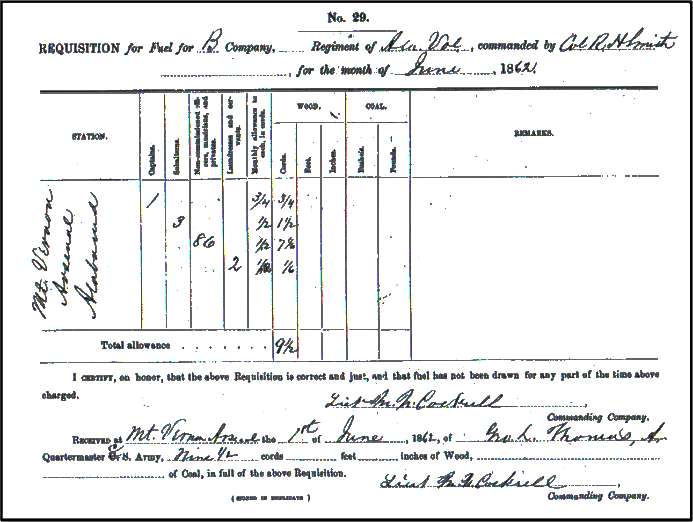 No. 29.
REQUISITION for Fuel for B Company, Regiment of Ala. Vol, commanded by Col R. H. Smith
, for the month of June , 1862.
STATION. Captains. Subalterns. Non-commissioned officers, musicians, and privates. Laundresses and servants. Monthly allowance to each, in cords. WOOD. COAL. REMARKS.
Cords. Feet. Inches. Bushels. Pounds.
Mt. Vernon
Arsenal
Alabama
1 3/4 3/4
3 1/2 1 1/2
86 1/12 7
2 1/12 1/6
Total allowance 9 1/2
I CERTIFY, on honor, that the above Requisition is correct and just, and that fuel has not been drawn for any part of the time above
charged.
Lieut N. N. Cockrell
Commanding Company.
RECEIVED at Mt. Vernon Arsenal the 1st of June , 1862, of Geo. L. Thomas, A.
Quartermaster C. S. Army, Nine 1/2 cords feet inches of Wood,
of Coal, in full of the above Requisition.
Lieut N. N. Cockrell
Commanding Company.
(SIGNED IN DUPLICATE)